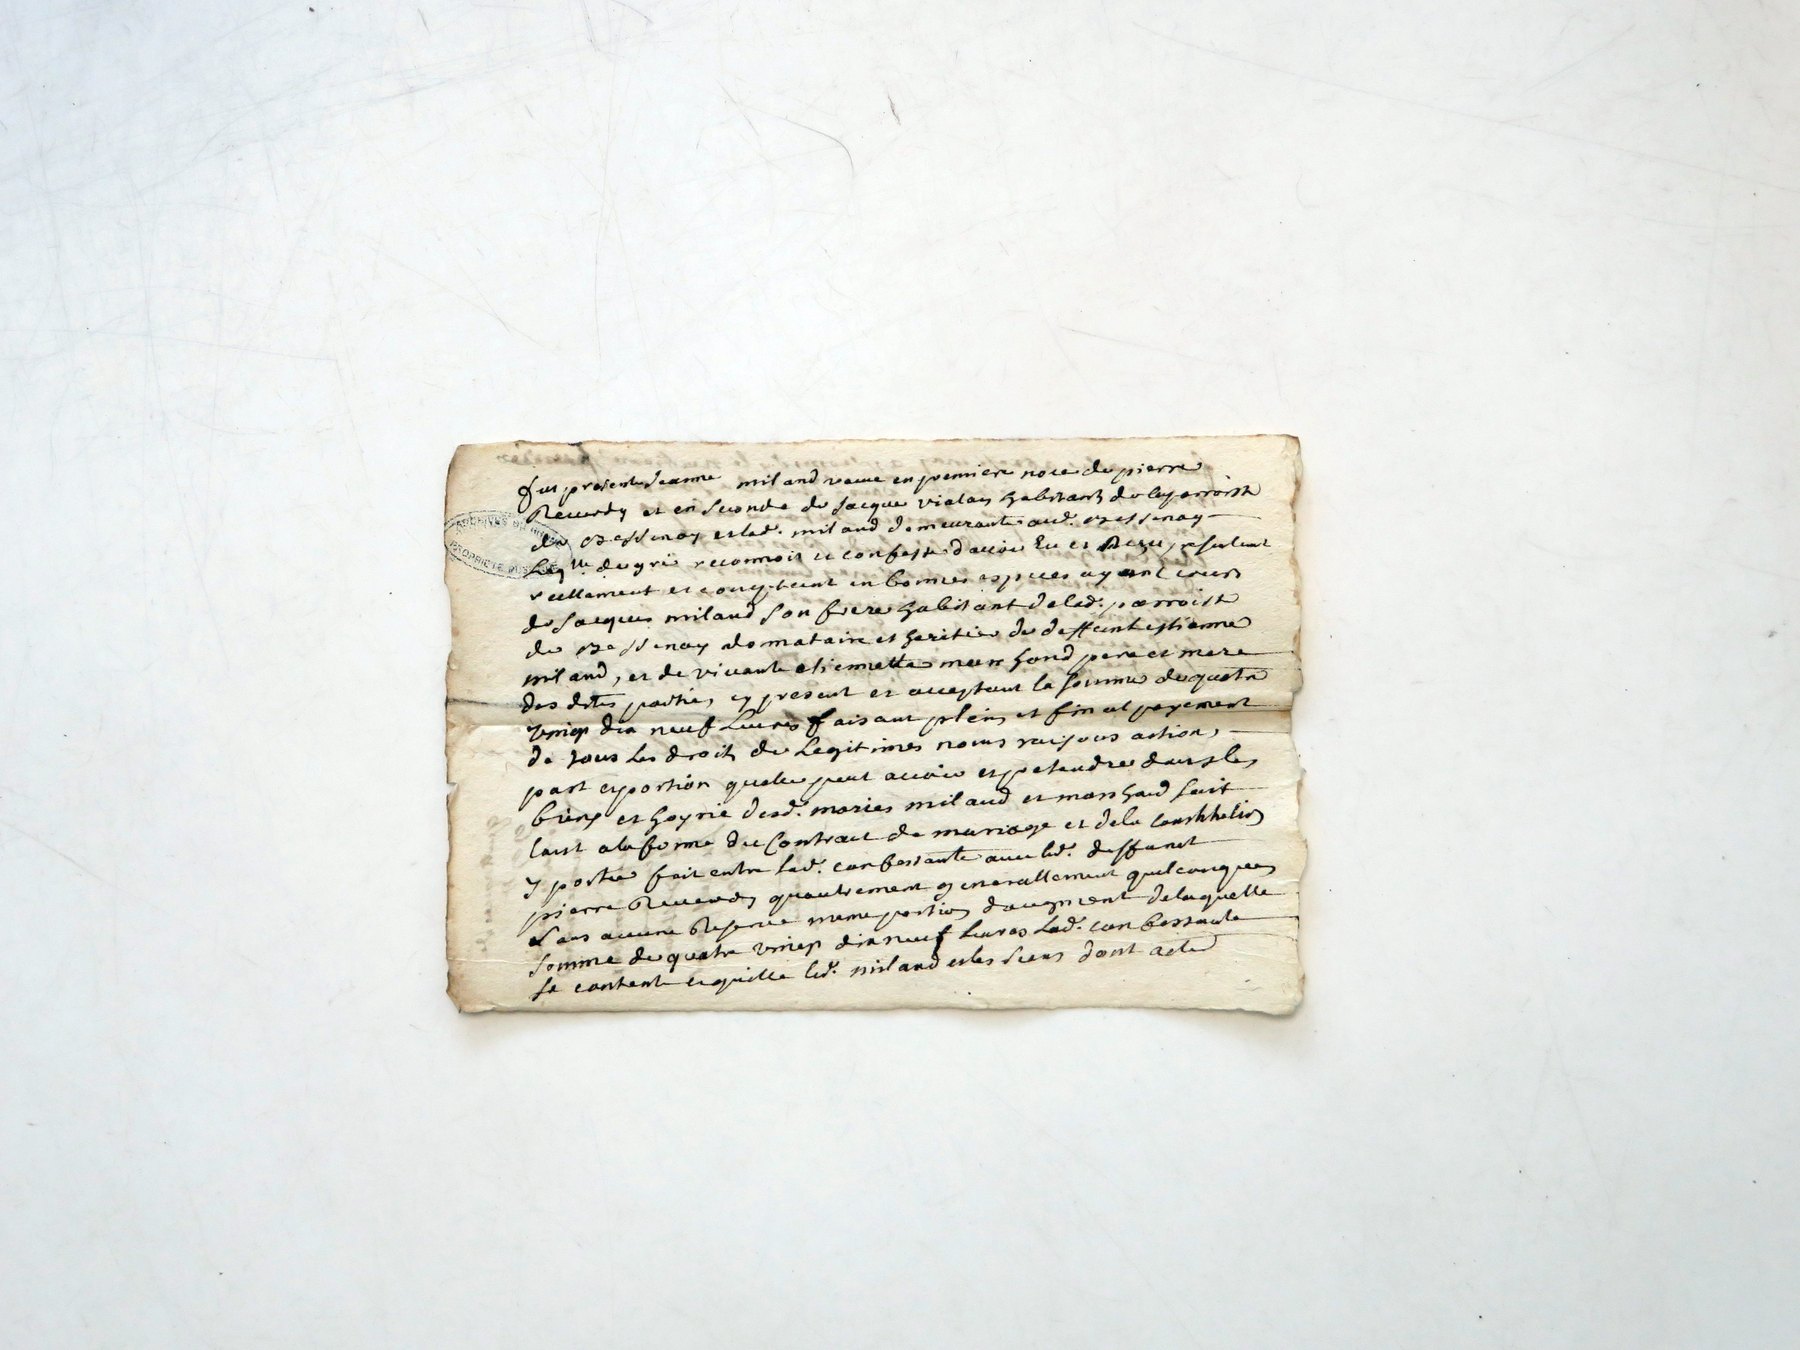 fut presente Jeanne milaud veuve en premiere noce de pierre
Reverdy et en seconde de Jacque vialay habitant de la parroisse
de Bessenay et lad. milaud demeurante aud. Bessenay
Laq.lle de gré reconnoit et confesse d'avoir Eu et Reçu presentement
reellement et comptant en bonnes espèces ayant cours
de Jacques milaud son frere habitant de lad. parroisse
de Bessenay donnataire et heritier de deffunt estienne
milaud, et de vivante etiennette marchand pere et mere
des dites parties, cy present et acceptant la somme de quatre
vingt dix neuf Livres faisant plein et final payement
de tous les droits de Legitimes noms raisons action,
part et portion quelle peut avoir et pretendre dans les
biens et hoyrie desd. maries milaud et marchand soit
tout a la forme du Contract de mariage et dela
y portée fait entre lad. confessante avec led. deffunt
pierre Reverdy quautrement generallement quelconques
sans aucune Reserve meme portion daugment de laquelle
somme de quatre vingt dix neuf Livres Lad. confessante
se contente et quitte led. milaud et les siens dont acte
ARCHIVES DU RHÔNE
PROPRIÉTÉ PUBLIQUE